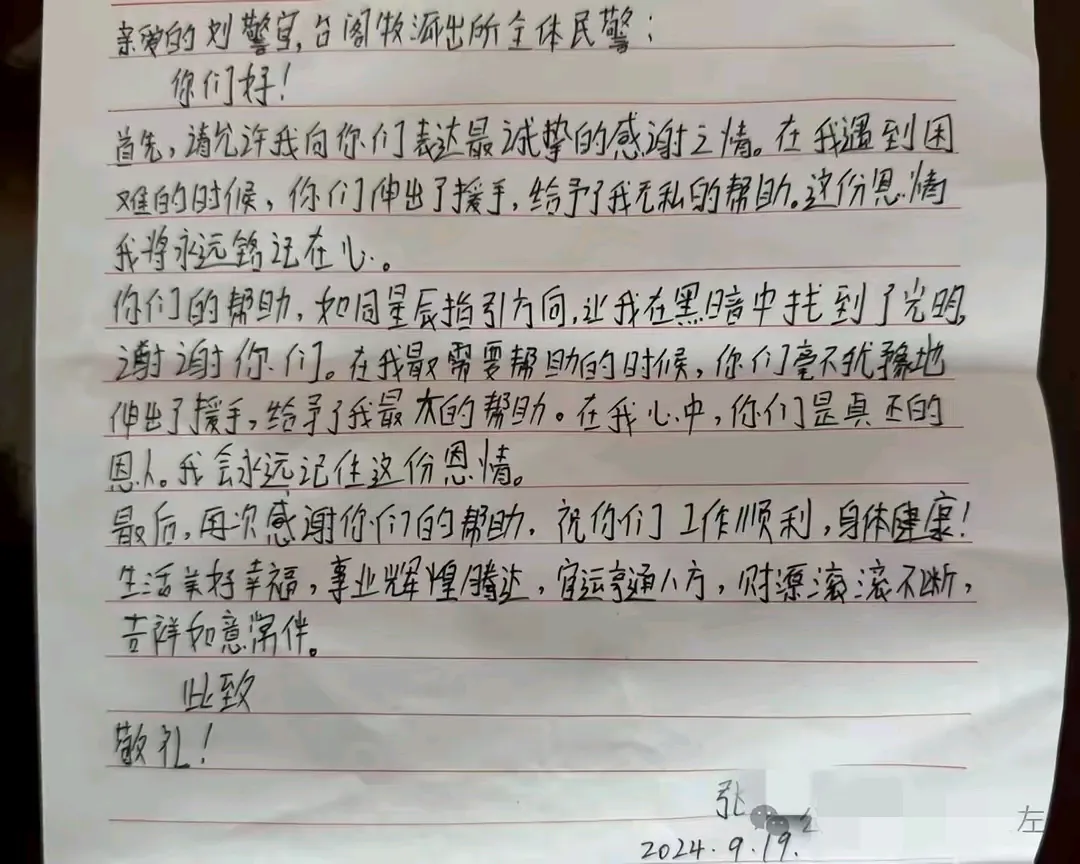 亲爱的刘警官,台阁牧派出所全体民警:
你们好!
首先,请允许我向你们表达最诚挚的感谢之情。在我遇到困
难的时候,你们伸出了援手,给予了我无私的帮助。这份恩情
我将永远铭记在心。
你们的帮助,如同星辰指引方向,让我在黑暗中找到了光明,
谢谢你们。在我最需要帮助的时候,你们毫不犹豫地
伸出了援手,给予了我最大的帮助。在我心中,你们是真正的
恩人。我会永远记住这份恩情。
最后,再次感谢你们的帮助,祝你们工作顺利,身体健康!
生活美好幸福,事业辉煌腾达,官运亨通八方,财源滚滚不断,
吉祥如意常伴。
此致
敬礼!
张
左
2024.9.19.